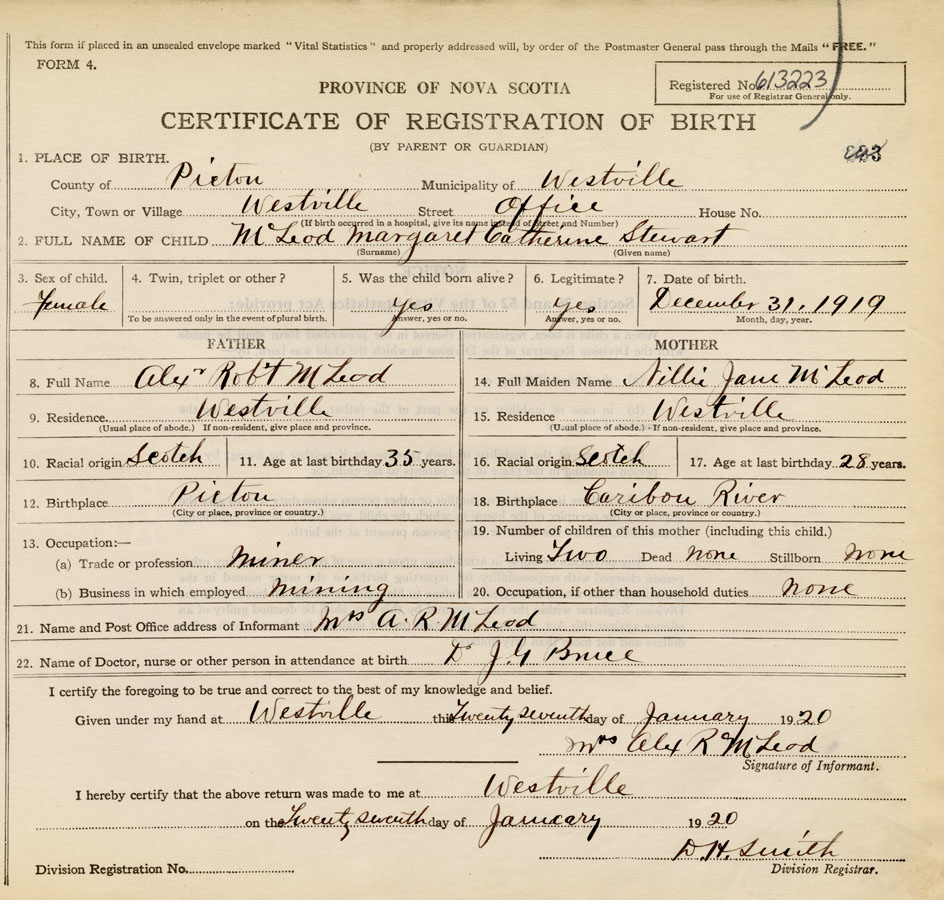 This form if placed in an unsealed envelope marked "Vital Statistics" and properly addressed will, by order of the Postmaster General pass through the Mails "FREE."
FORM 4.
PROVINCE OF NOVA SCOTIA
Registered No. 613223
For use of Registrar General only.
CERTIFICATE OF REGISTRATION OF BIRTH
(BY PARENT OR GUARDIAN)
1. PLACE OF BIRTH.
County of Pictou Municipality of Westville
City, Town or Village Westville Street Office House No.
(If birth occurred in a hospital, give its name instead of Street and Number)
2. FULL NAME OF CHILD McLeod Margaret Catherine Stewart
(Surname) (Given name)
3. Sex of child. 4. Twin, triplet or other? 5. Was the child born alive? 6. Legitimate? 7. Date of birth.
Female Yes Yes December 31, 1919
To be answered only in the event of plural birth. Answer, yes or no. Answer, yes or no. Month, day, year.
FATHER MOTHER
8. Full Name Alexr Robt McLeod 14. Full Maiden Name Nillie Jane McLeod
9. Residence. Westville 15. Residence Westville
(Usual place of abode.) If non-resident, give place and province. (Usual place of abode.) - If non-resident, give place and province.
10. Racial origin Scotch 11. Age at last birthday 35 years. 16. Racial origin Scotch 17. Age at last birthday 28 years.
12. Birthplace Pictou 18. Birthplace Caribou River
(City or place, province or country.) (City or place, province or country.)
13. Occupation:— 19. Number of children of this mother (including this child.)
(a) Trade or profession miner Living Two Dead none Stillborn none
(b) Business in which employed mining 20. Occupation, if other than household duties none
21. Name and Post Office address of Informant Mrs A. R. McLeod
22. Name of Doctor, nurse or other person in attendance at birth Dr J. G Bruce
I certify the foregoing to be true and correct to the best of my knowledge and belief.
Given under my hand at Westville this Twenty seventh day of January 1920
Mrs Alex R McLeod
Signature of Informant.
I hereby certify that the above return was made to me at Westville
on the Twenty seventh day of January 1920
D. H. Smith
Division Registration No. Division Registrar.